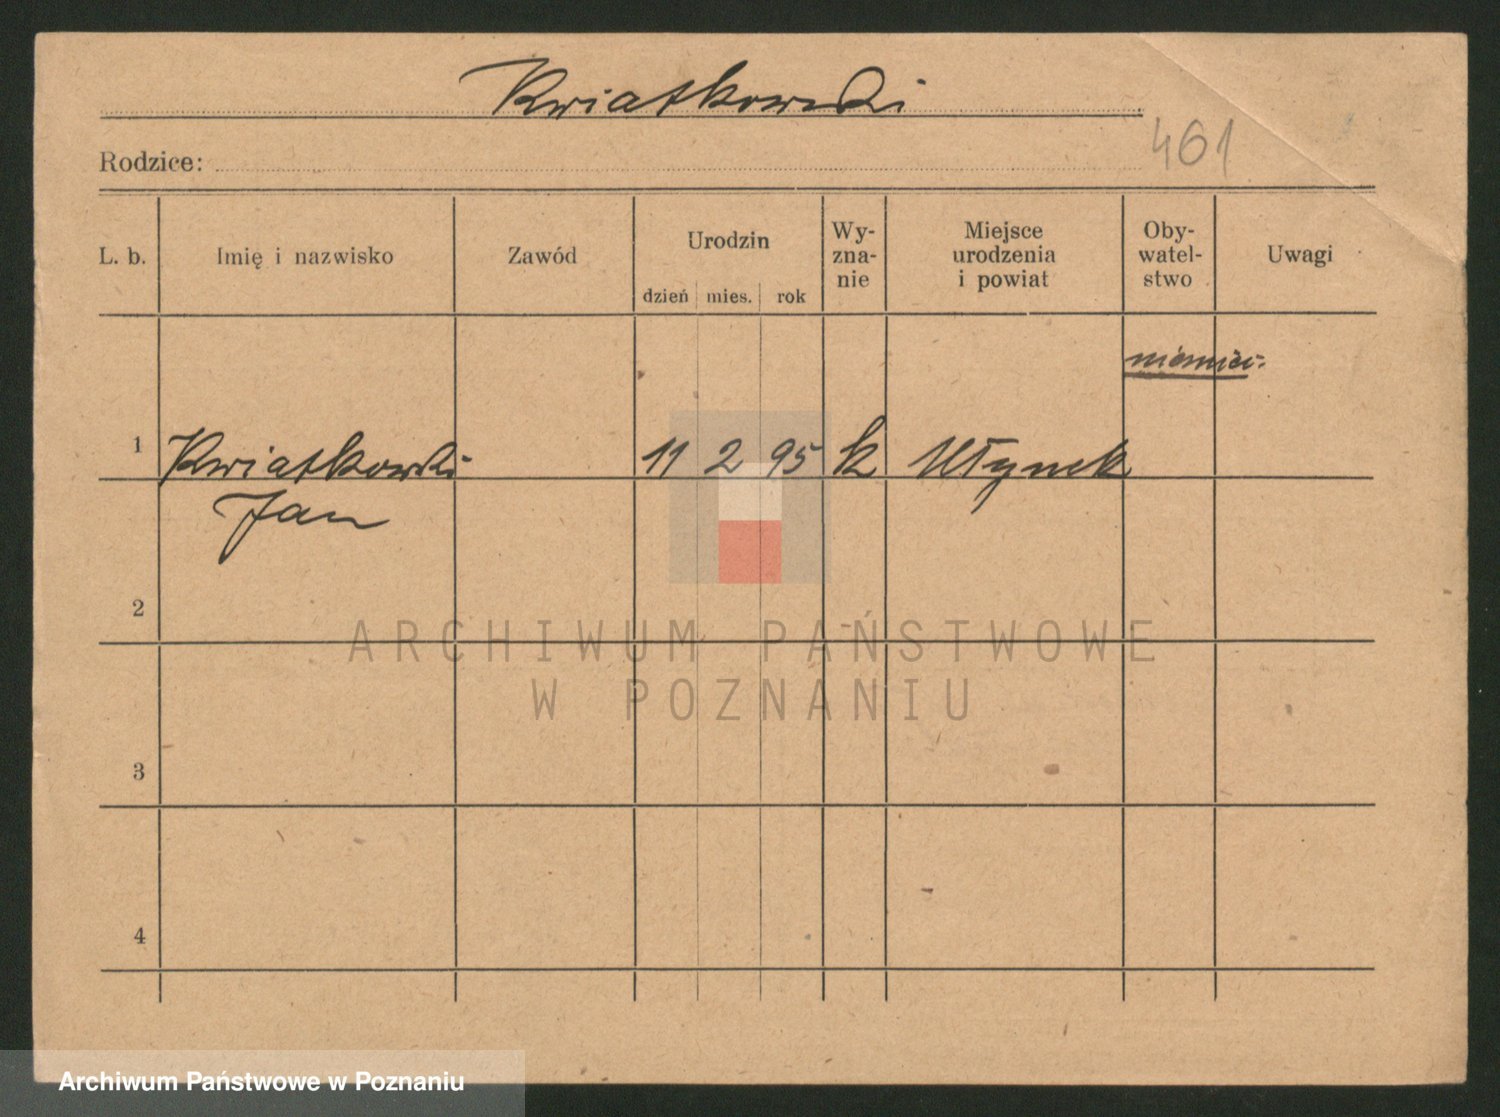 Kwiatkowski
461
Rodzice:
L. b.
Imię i nazwisko
Zawód
Urodzin
dzień mies. rok
Wy-
zna-
nie
Miejsce
urodzenia
i powiat
Oby-
watel-
stwo
Uwagi
1
Kwiatkowski
Jan
11 2 95 k Młynek
2
3
4
ARCHIWUM PAŃSTWOWE
W POZNANIU
Archiwum Państwowe w Poznaniu